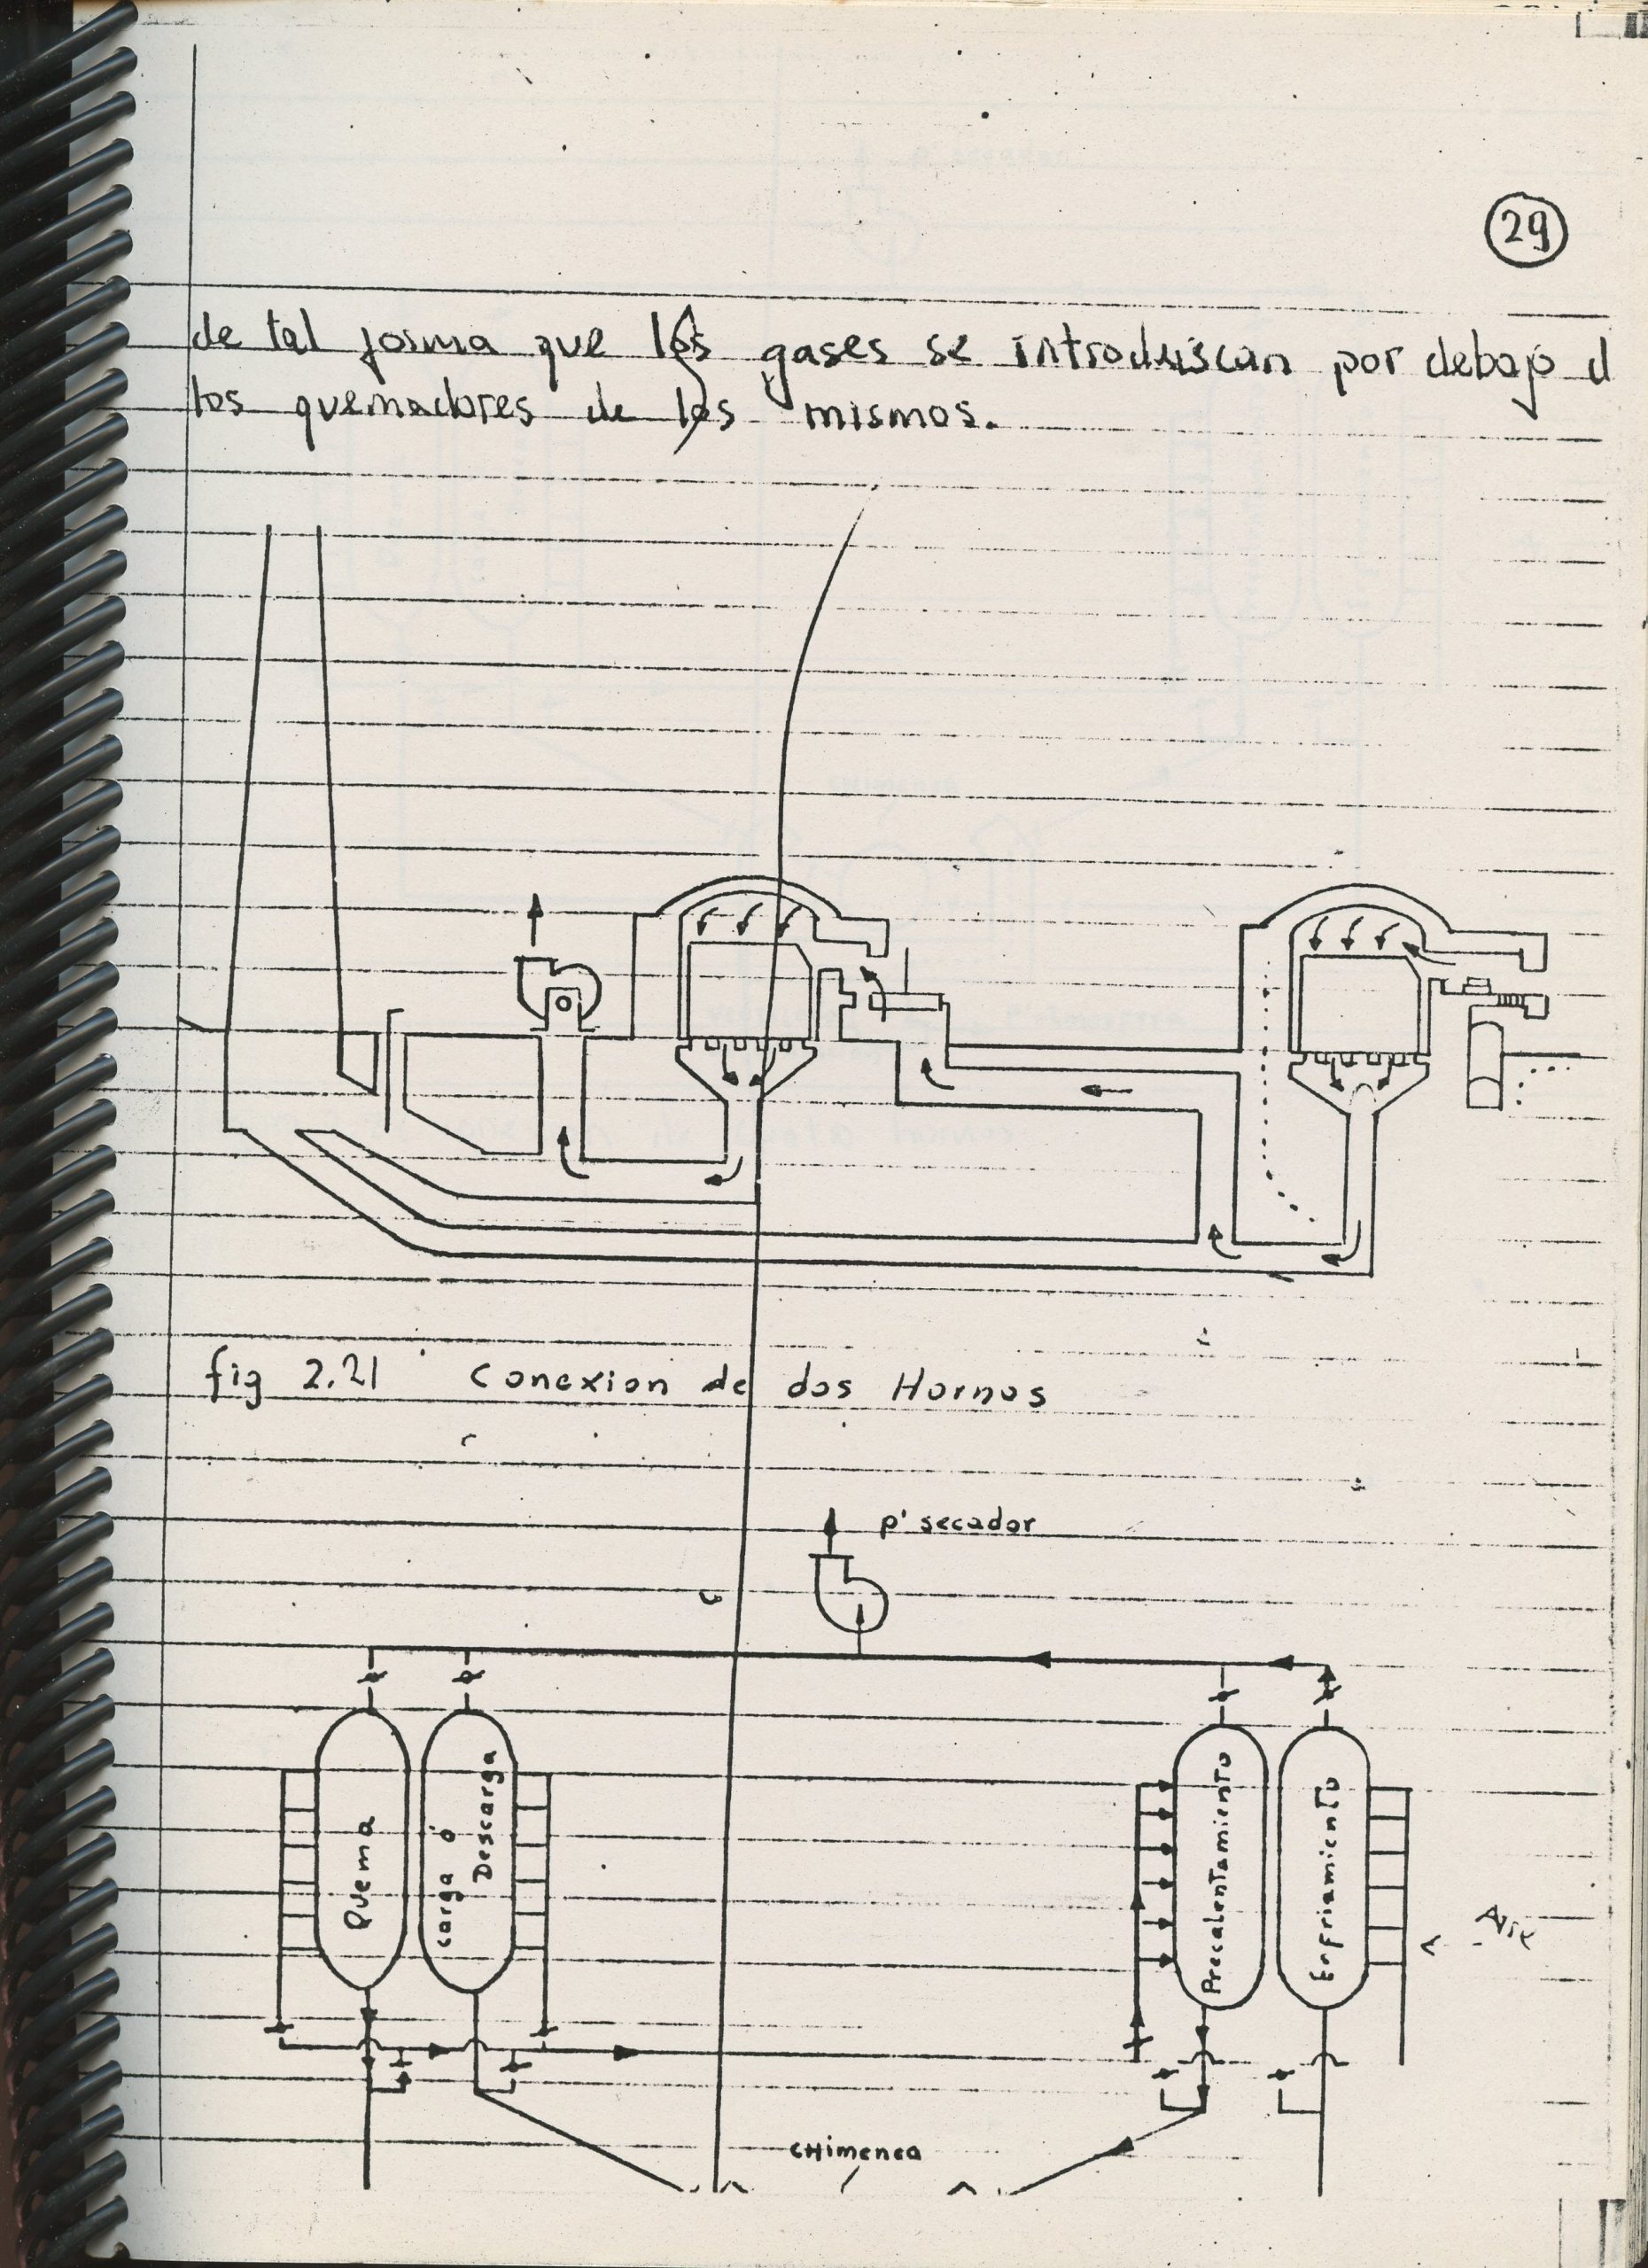 29
de tal forma que los gases se introduiscan por debajo d
los quemadores de los mismos.
fig 2.21 Conexion de dos Hornos
p' secador
Quema
carga ó
Descarga
Precalentamiento
Enfriamiento
Aire
CHimenea